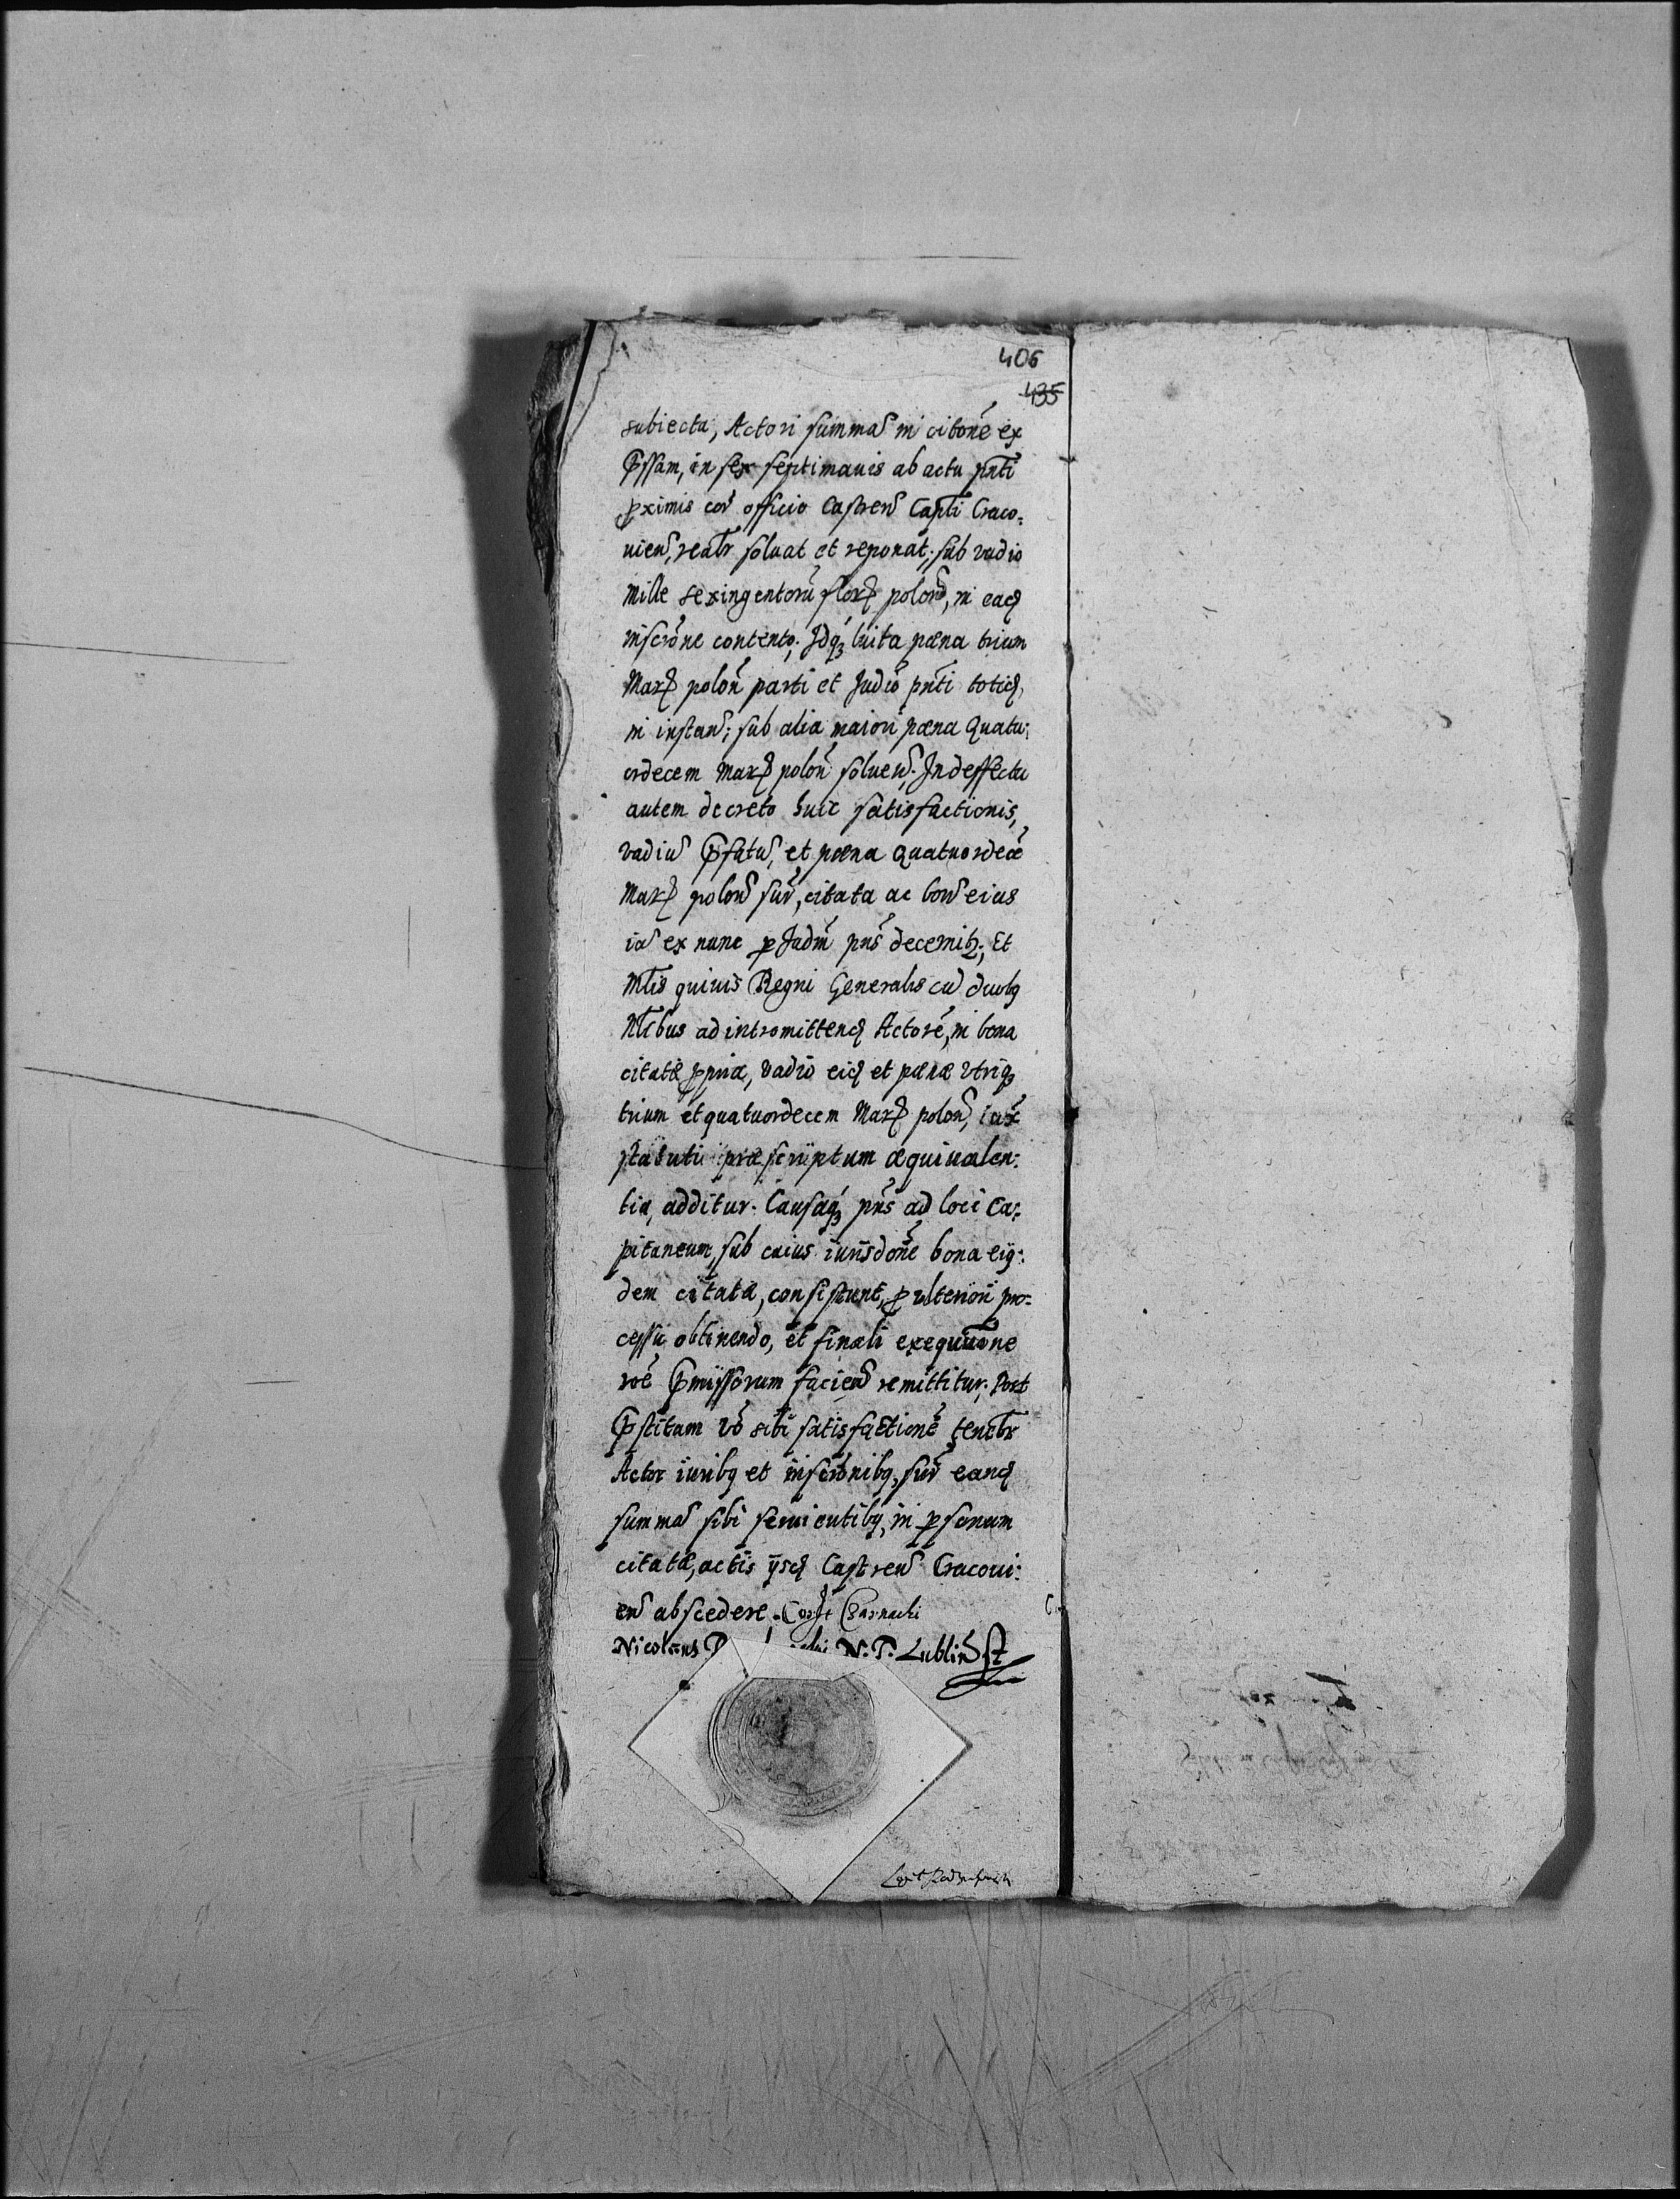 406
435
subiecta, Actori summã in citõne ex
pssam, in sex septimanis ab actu pñti
pximis corã officio Castreñ Capti̅ Craco-
vieñ, realr̅ solvat et reponat; sub vadio
Mille sexingentorũ flor polon̅, in ead
inscrõne contento; Idq₃ luita pæna trium
Marc poloñ parti et Judõ pñti totid
in instañ; sub alia maiori pæna Quatu-
ordecem Marc poloñ solueñ. In deffectu
autem decreto huic satisfactionis,
vadiũ pfatũ, et pæna quatuordecẽ
Marc poloñ supr̃, citata ac boñ eius
iã ex nunc p Judm̃ pñs decernitr; Et
Mlis̃ quivis Regni Generalis cũ duobq
Nl̃ibus ad intromittend Actorẽ, in bona
citatæ ppria, vadio eid et pænæ utriq₃
trium et quatuordecem Marc poloñ, iux̃
statuti præscriptum æquivalen-
tia, additur. Causaq₃ pñs ad loci Ca-
pitaneum, sub cuius iurisdõne bona eius-
dem citatæ, consistunt, p ulteriori pro-
cessu obtinendo, et finali exequu̅tõne
rõe pmissorum facieñ remittitur. Post
pstitam võ sibi satisfactionẽ tenebr̅
Actor iuribq et inscrõnibq, supr̃ eand
summã sibi servientibq, in psonam
citatæ, actis ijsd Castreñ Cracovi-
eñ abscedere. Corxt Czarnacki
Nicolaus P N. T. Lubliñ